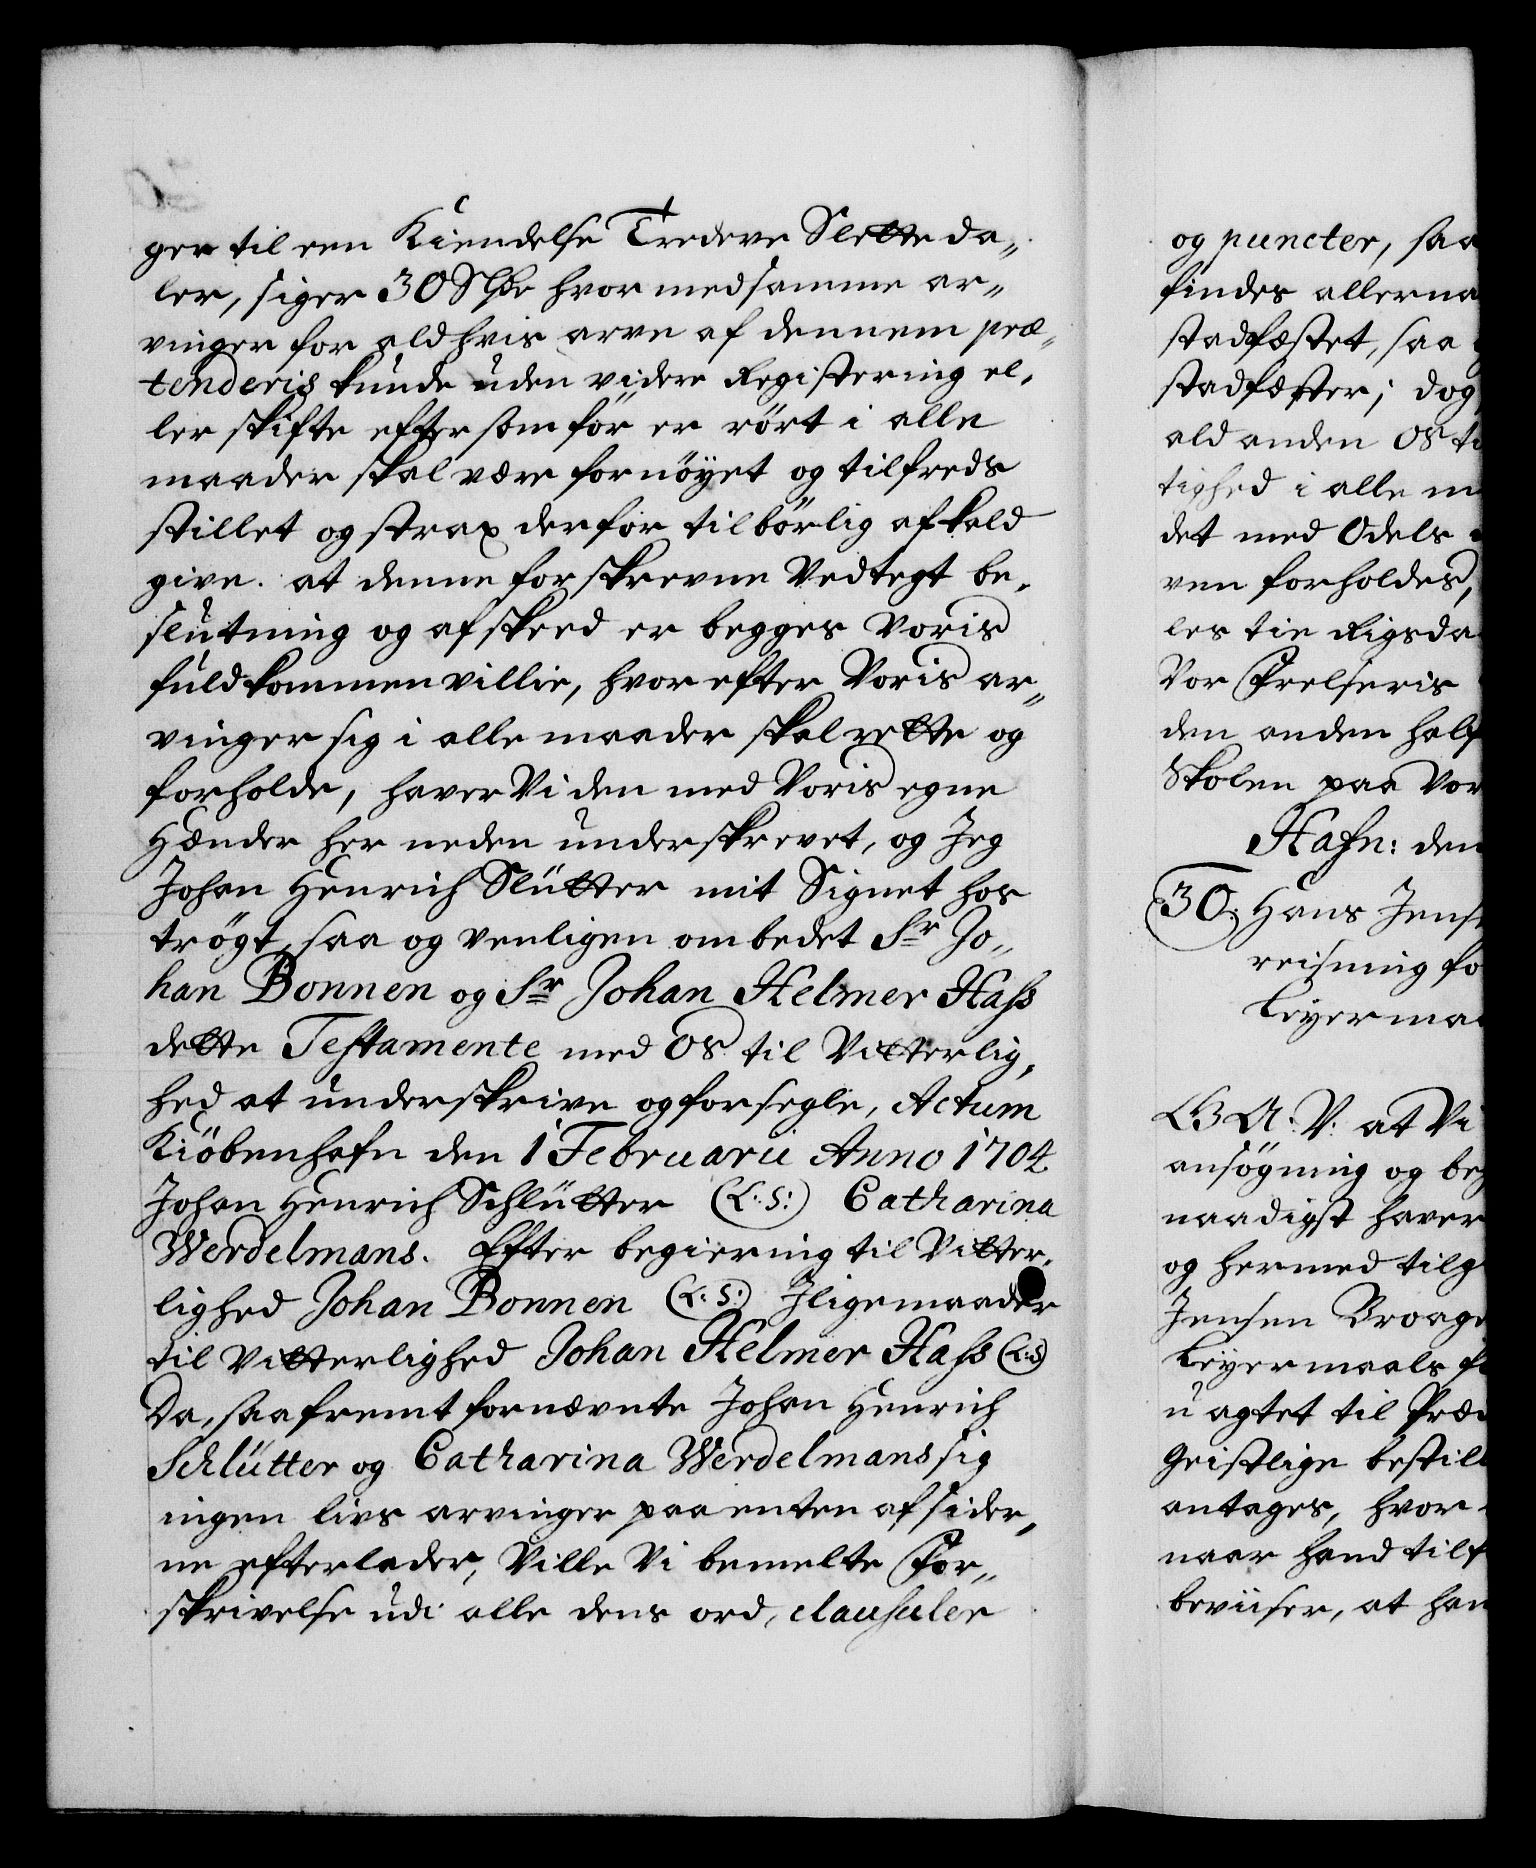 ger til een Kiendelse Tredeve Slette da„
ler, siger 30 Sldr hvor med samme ar„
vinger for ald hvis arve af dennem præ„
tenderis kunde uden videre Registering el„
ler skifte efter som för er rört i alle
maader skal være fornöyet og tilfreds
stillet og strax derfor tilbörlig afkald
give. at denne forskrevne Vedtegt be„
slutning og afskeed er begges Voris
fuldkommen villie, hvor efter Voris ar„
vinger sig i alle maader skal rette og
forholde, haver Vi den med Voris egne
Hænder her neden underskrevet, og Jeg
Johan Henrich Slütter mit Signet hos
trögt, saa og venligen ombedet Sr Jo„
han Bonnen og Sr Johan Helmer Hass
dette Testamente med Os til Vitterlig„
hed at underskrive og forsegle, Actum
Kiöbenhafn den 1 Februarii Anno 1704
Johan Henrich Schlütter (L: S:) Catharina
Werdelmans. Efter begiering til Vitter„
lighed Johan Bonnen (L: S:) Jligemaader
til Vitterlighed Johan Helmer Hass (L:S)
Da, saafremt fornævnte Johan Henrich
Schlütter og Catharina Werdelmans sig
ingen livs arvinger paa enten af sider„
ne efterlader, Ville Vi bemelte For„
skrivelse udi alle dens ord, clausuler
og puncter, saa
findes allerna
stadfæstet, saa
stadfæster; dog
ald anden Os ti
tighed i alle m
det med Odels
ven forholdes,
les tie Rigsda
Vor Frelseris
den anden half
Skolen paa Vor
Hafn: den
30. Hans Jens
reisning fo
Leyermaa
G A: V: at Vi
ansögning og beg
naadigst haver
og hermed tilg
Jensen Broage
Leyermaals f
u agtet til Præd
Geistlige bestill
antages, hvor
naar hand tilf
beviiser, at han